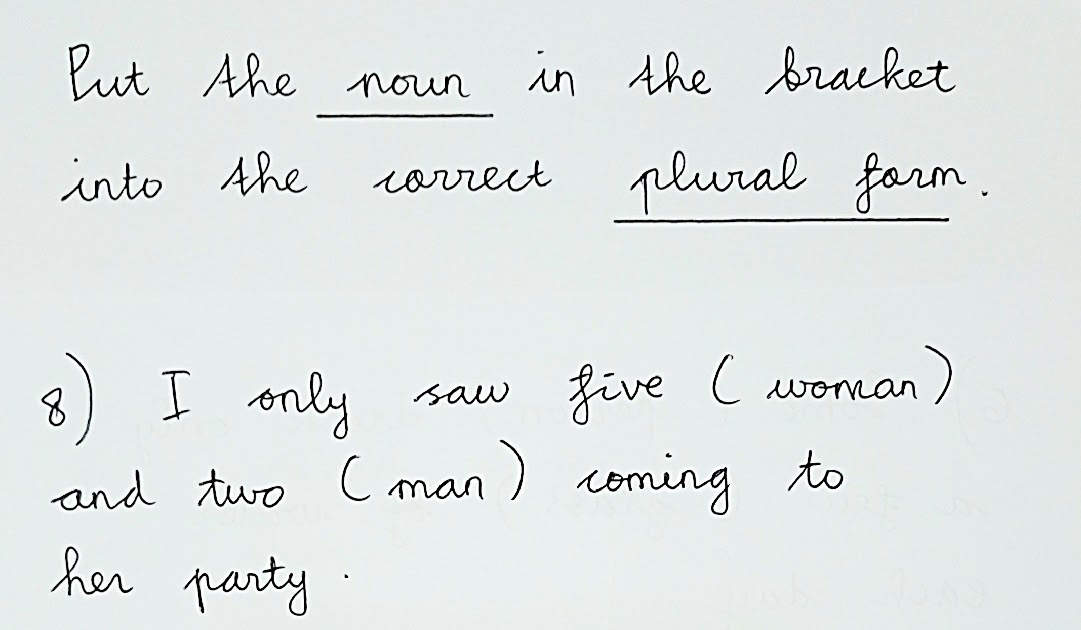 Put the noun in the bracket
into the correct plural form.
8) I only saw five (woman)
and two (man) coming to
her party.